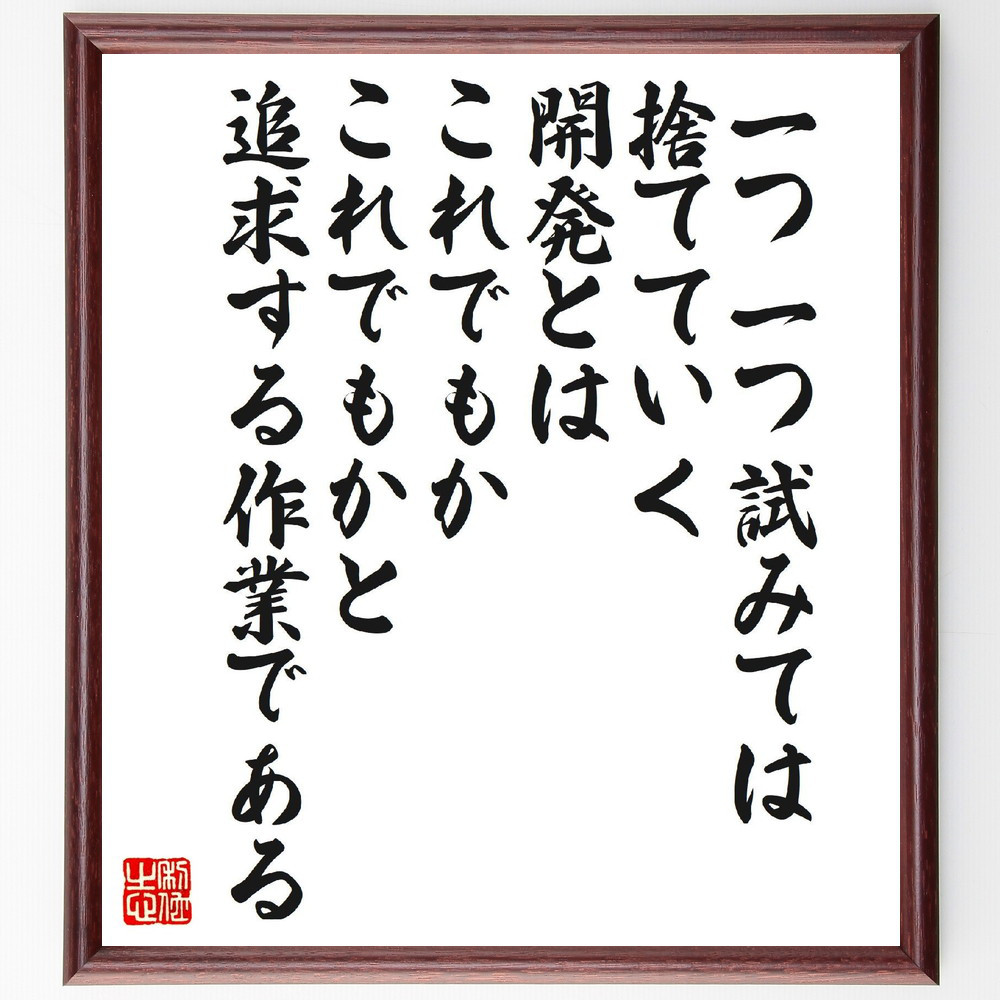 一つ一つ試みては
捨てていく
開発とは
これでもか
これでもかと
追求する作業である